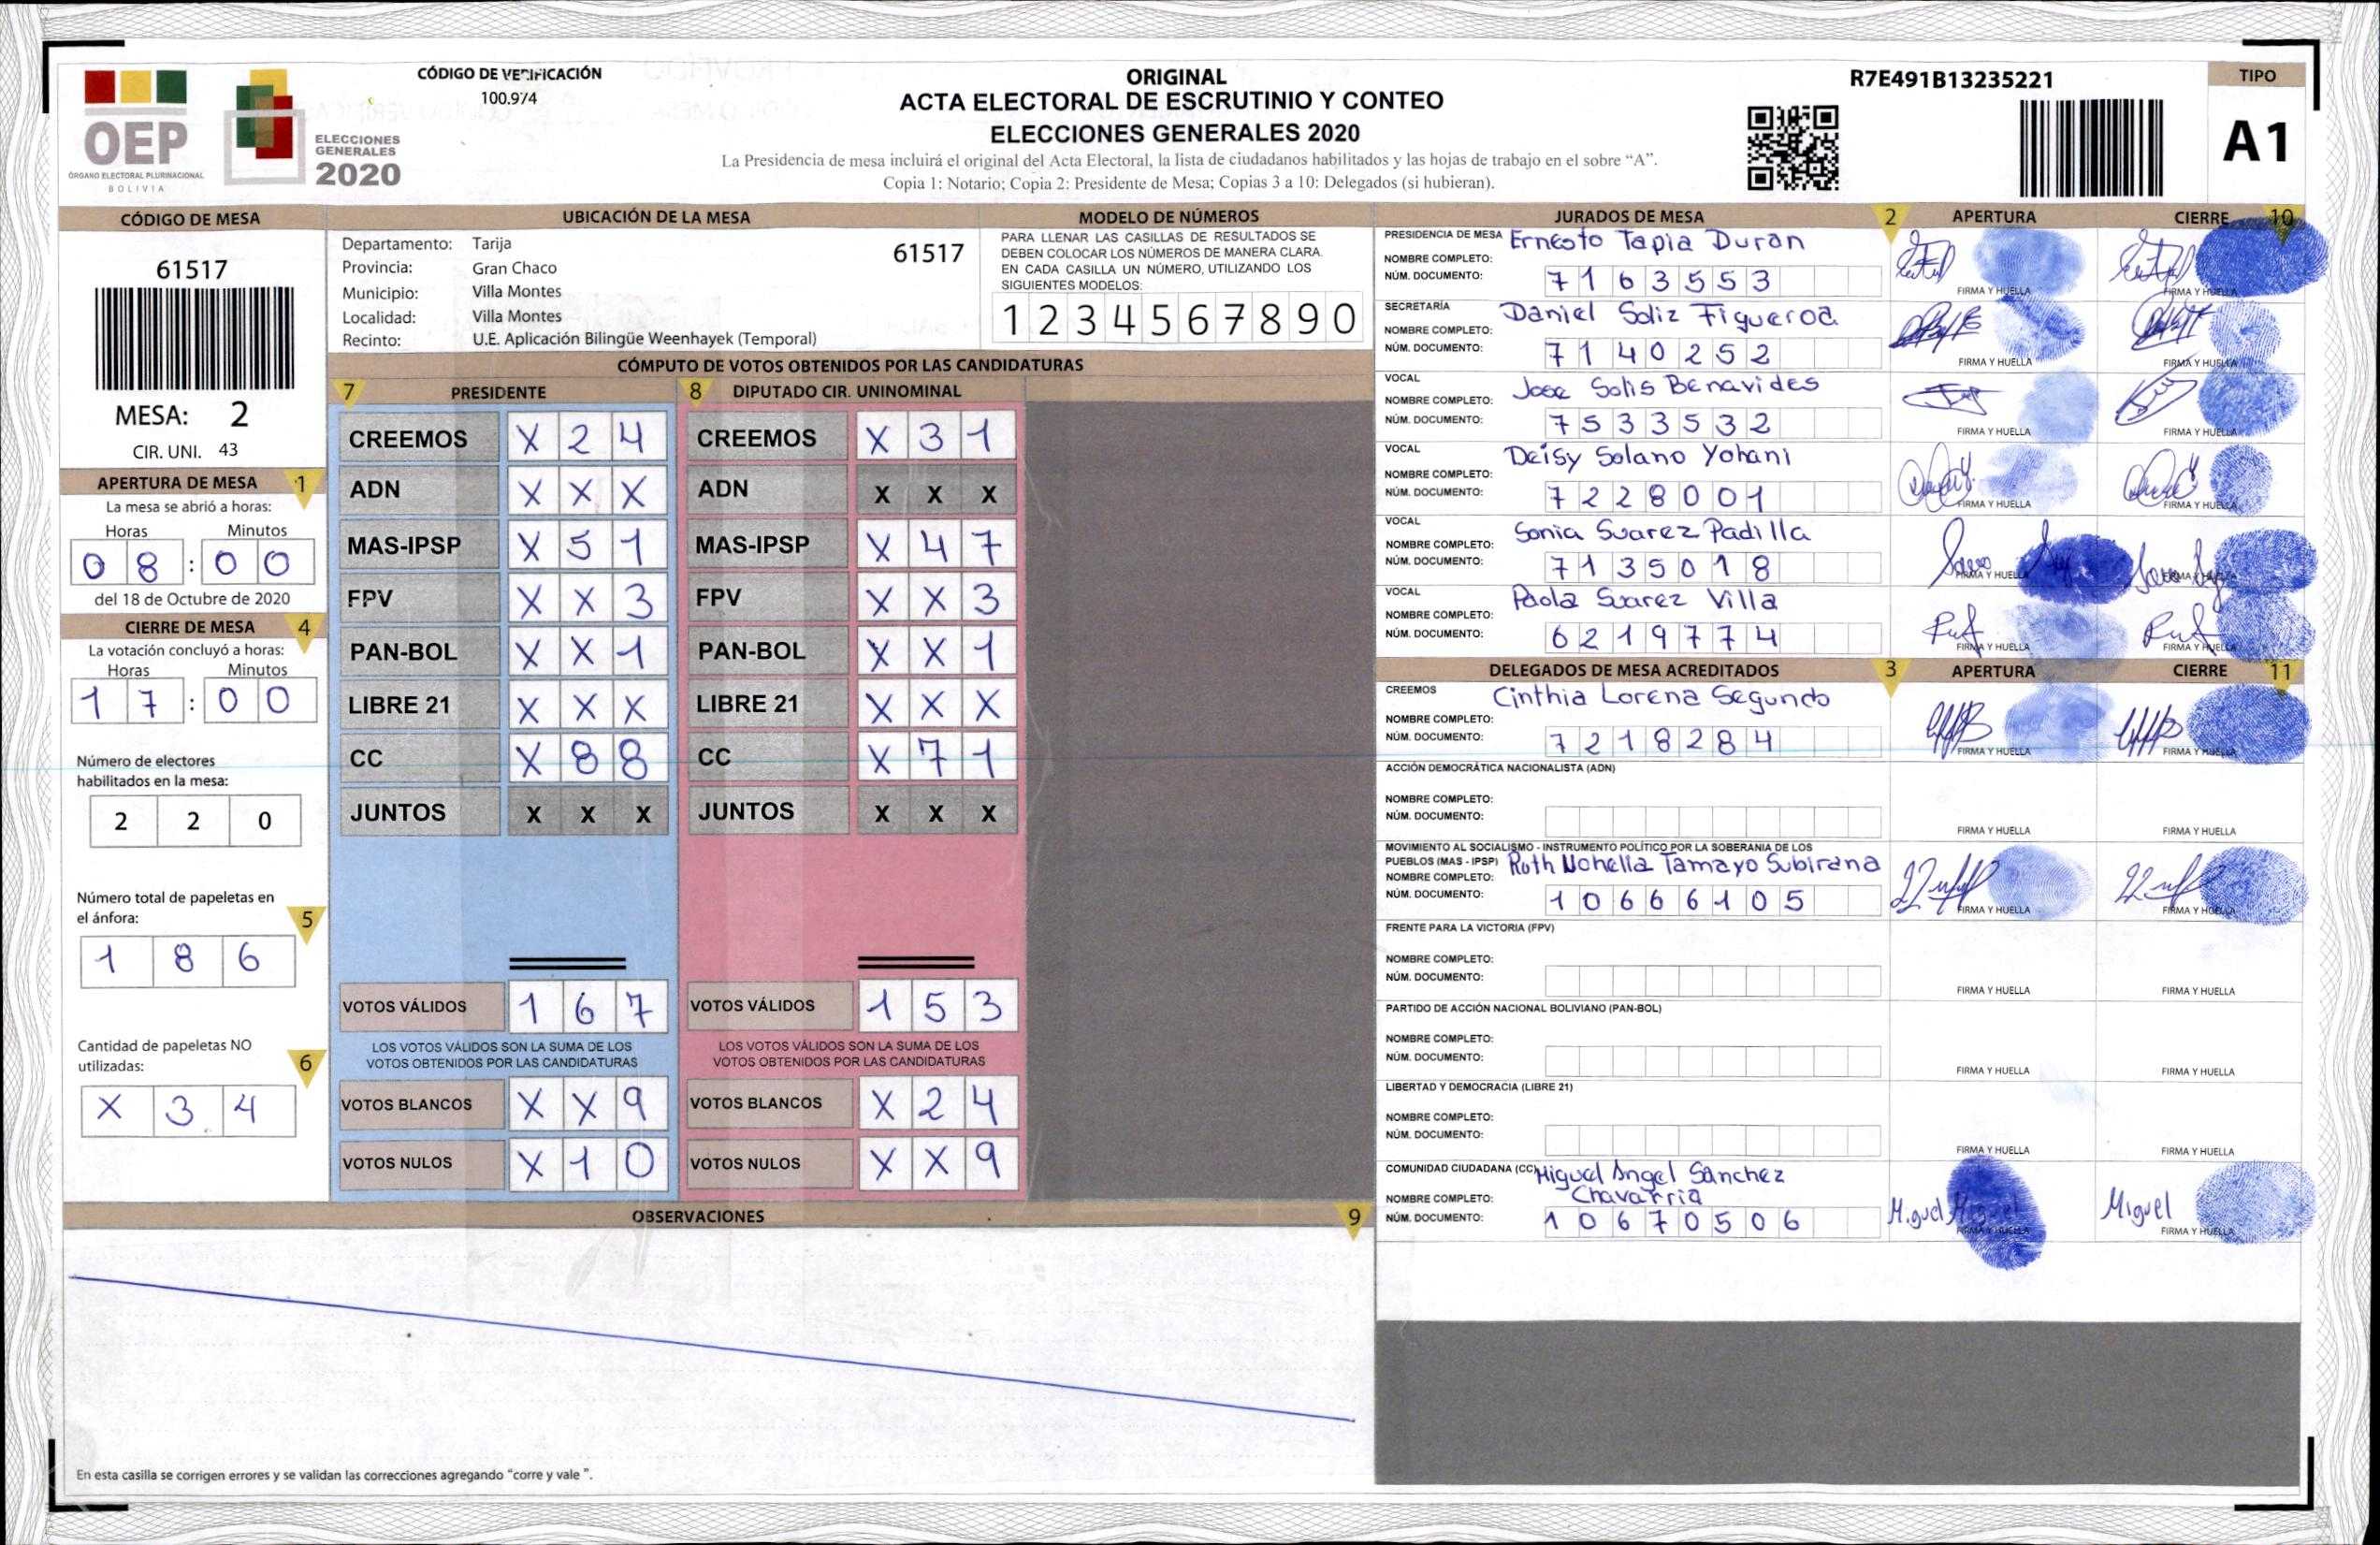 OEP
ÓRGANO ELECTORAL PLURINACIONAL
BOLIVIA
ELECCIONES
GENERALES
2020
CÓDIGO DE VERIFICACIÓN
100.974
ORIGINAL
ACTA ELECTORAL DE ESCRUTINIO Y CONTEO
ELECCIONES GENERALES 2020
La Presidencia de mesa incluirá el original del Acta Electoral, la lista de ciudadanos habilitados y las hojas de trabajo en el sobre “A”.
Copia 1: Notario; Copia 2: Presidente de Mesa; Copias 3 a 10: Delegados (si hubieran).
R7E491B13235221
TIPO
A1
CÓDIGO DE MESA
61517
MESA: 2
CIR. UNI. 43
APERTURA DE MESA 1
La mesa se abrió a horas:
Horas Minutos
0 8 : 0 0
del 18 de Octubre de 2020
CIERRE DE MESA 4
La votación concluyó a horas:
Horas Minutos
1 7 : 0 0
Número de electores
habilitados en la mesa:
2 2 0
Número total de papeletas en
el ánfora: 5
1 8 6
Cantidad de papeletas NO
utilizadas: 6
X 3 4
UBICACIÓN DE LA MESA
Departamento: Tarija 61517
Provincia: Gran Chaco
Municipio: Villa Montes
Localidad: Villa Montes
Recinto: U.E. Aplicación Bilingüe Weenhayek (Temporal)
MODELO DE NÚMEROS
PARA LLENAR LAS CASILLAS DE RESULTADOS SE
DEBEN COLOCAR LOS NÚMEROS DE MANERA CLARA.
EN CADA CASILLA UN NÚMERO, UTILIZANDO LOS
SIGUIENTES MODELOS:
1 2 3 4 5 6 7 8 9 0
CÓMPUTO DE VOTOS OBTENIDOS POR LAS CANDIDATURAS
7 PRESIDENTE
CREEMOS X 2 4
ADN X X X
MAS-IPSP X 5 1
FPV X X 3
PAN-BOL X X 1
LIBRE 21 X X X
CC X 8 8
JUNTOS X X X
VOTOS VÁLIDOS 1 6 7
LOS VOTOS VÁLIDOS SON LA SUMA DE LOS
VOTOS OBTENIDOS POR LAS CANDIDATURAS
VOTOS BLANCOS X X 9
VOTOS NULOS X 1 0
8 DIPUTADO CIR. UNINOMINAL
CREEMOS X 3 1
ADN X X X
MAS-IPSP X 4 7
FPV X X 3
PAN-BOL X X 1
LIBRE 21 X X X
CC X 7 1
JUNTOS X X X
VOTOS VÁLIDOS 1 5 3
LOS VOTOS VÁLIDOS SON LA SUMA DE LOS
VOTOS OBTENIDOS POR LAS CANDIDATURAS
VOTOS BLANCOS X 2 4
VOTOS NULOS X X 9
OBSERVACIONES 9
En esta casilla se corrigen errores y se validan las correcciones agregando “corre y vale ”.
JURADOS DE MESA 2 APERTURA CIERRE 10
PRESIDENCIA DE MESA Ernesto Tapia Duran
NOMBRE COMPLETO:
NÚM. DOCUMENTO: 7 1 6 3 5 5 3
FIRMA Y HUELLA FIRMA Y HUELLA
SECRETARÍA Daniel Soliz Figueroa
NOMBRE COMPLETO:
NÚM. DOCUMENTO: 7 1 4 0 2 5 2
FIRMA Y HUELLA FIRMA Y HUELLA
VOCAL Jose Solis Benavides
NOMBRE COMPLETO:
NÚM. DOCUMENTO: 7 5 3 3 5 3 2
FIRMA Y HUELLA FIRMA Y HUELLA
VOCAL Deisy Solano Yohani
NOMBRE COMPLETO:
NÚM. DOCUMENTO: 7 2 2 8 0 0 1
FIRMA Y HUELLA FIRMA Y HUELLA
VOCAL Sonia Suarez Padilla
NOMBRE COMPLETO:
NÚM. DOCUMENTO: 7 1 3 5 0 1 8
FIRMA Y HUELLA FIRMA Y HUELLA
VOCAL Paola Suarez Villa
NOMBRE COMPLETO:
NÚM. DOCUMENTO: 6 2 1 9 7 7 4
FIRMA Y HUELLA FIRMA Y HUELLA
DELEGADOS DE MESA ACREDITADOS 3 APERTURA CIERRE 11
CREEMOS Cinthia Lorena Segundo
NOMBRE COMPLETO:
NÚM. DOCUMENTO: 7 2 1 8 2 8 4
FIRMA Y HUELLA FIRMA Y HUELLA
ACCIÓN DEMOCRÁTICA NACIONALISTA (ADN)
NOMBRE COMPLETO:
NÚM. DOCUMENTO:
FIRMA Y HUELLA FIRMA Y HUELLA
MOVIMIENTO AL SOCIALISMO - INSTRUMENTO POLÍTICO POR LA SOBERANIA DE LOS
PUEBLOS (MAS - IPSP) Ruth Nohelia Tamayo Subirana
NOMBRE COMPLETO:
NÚM. DOCUMENTO: 1 0 6 6 6 1 0 5
FIRMA Y HUELLA FIRMA Y HUELLA
FRENTE PARA LA VICTORIA (FPV)
NOMBRE COMPLETO:
NÚM. DOCUMENTO:
FIRMA Y HUELLA FIRMA Y HUELLA
PARTIDO DE ACCIÓN NACIONAL BOLIVIANO (PAN-BOL)
NOMBRE COMPLETO:
NÚM. DOCUMENTO:
FIRMA Y HUELLA FIRMA Y HUELLA
LIBERTAD Y DEMOCRACIA (LIBRE 21)
NOMBRE COMPLETO:
NÚM. DOCUMENTO:
FIRMA Y HUELLA FIRMA Y HUELLA
COMUNIDAD CIUDADANA (CC) Miguel Angel Sanchez
NOMBRE COMPLETO: Chavarria
NÚM. DOCUMENTO: 1 0 6 7 0 5 0 6
Miguel Miguel Miguel
FIRMA Y HUELLA FIRMA Y HUELLA